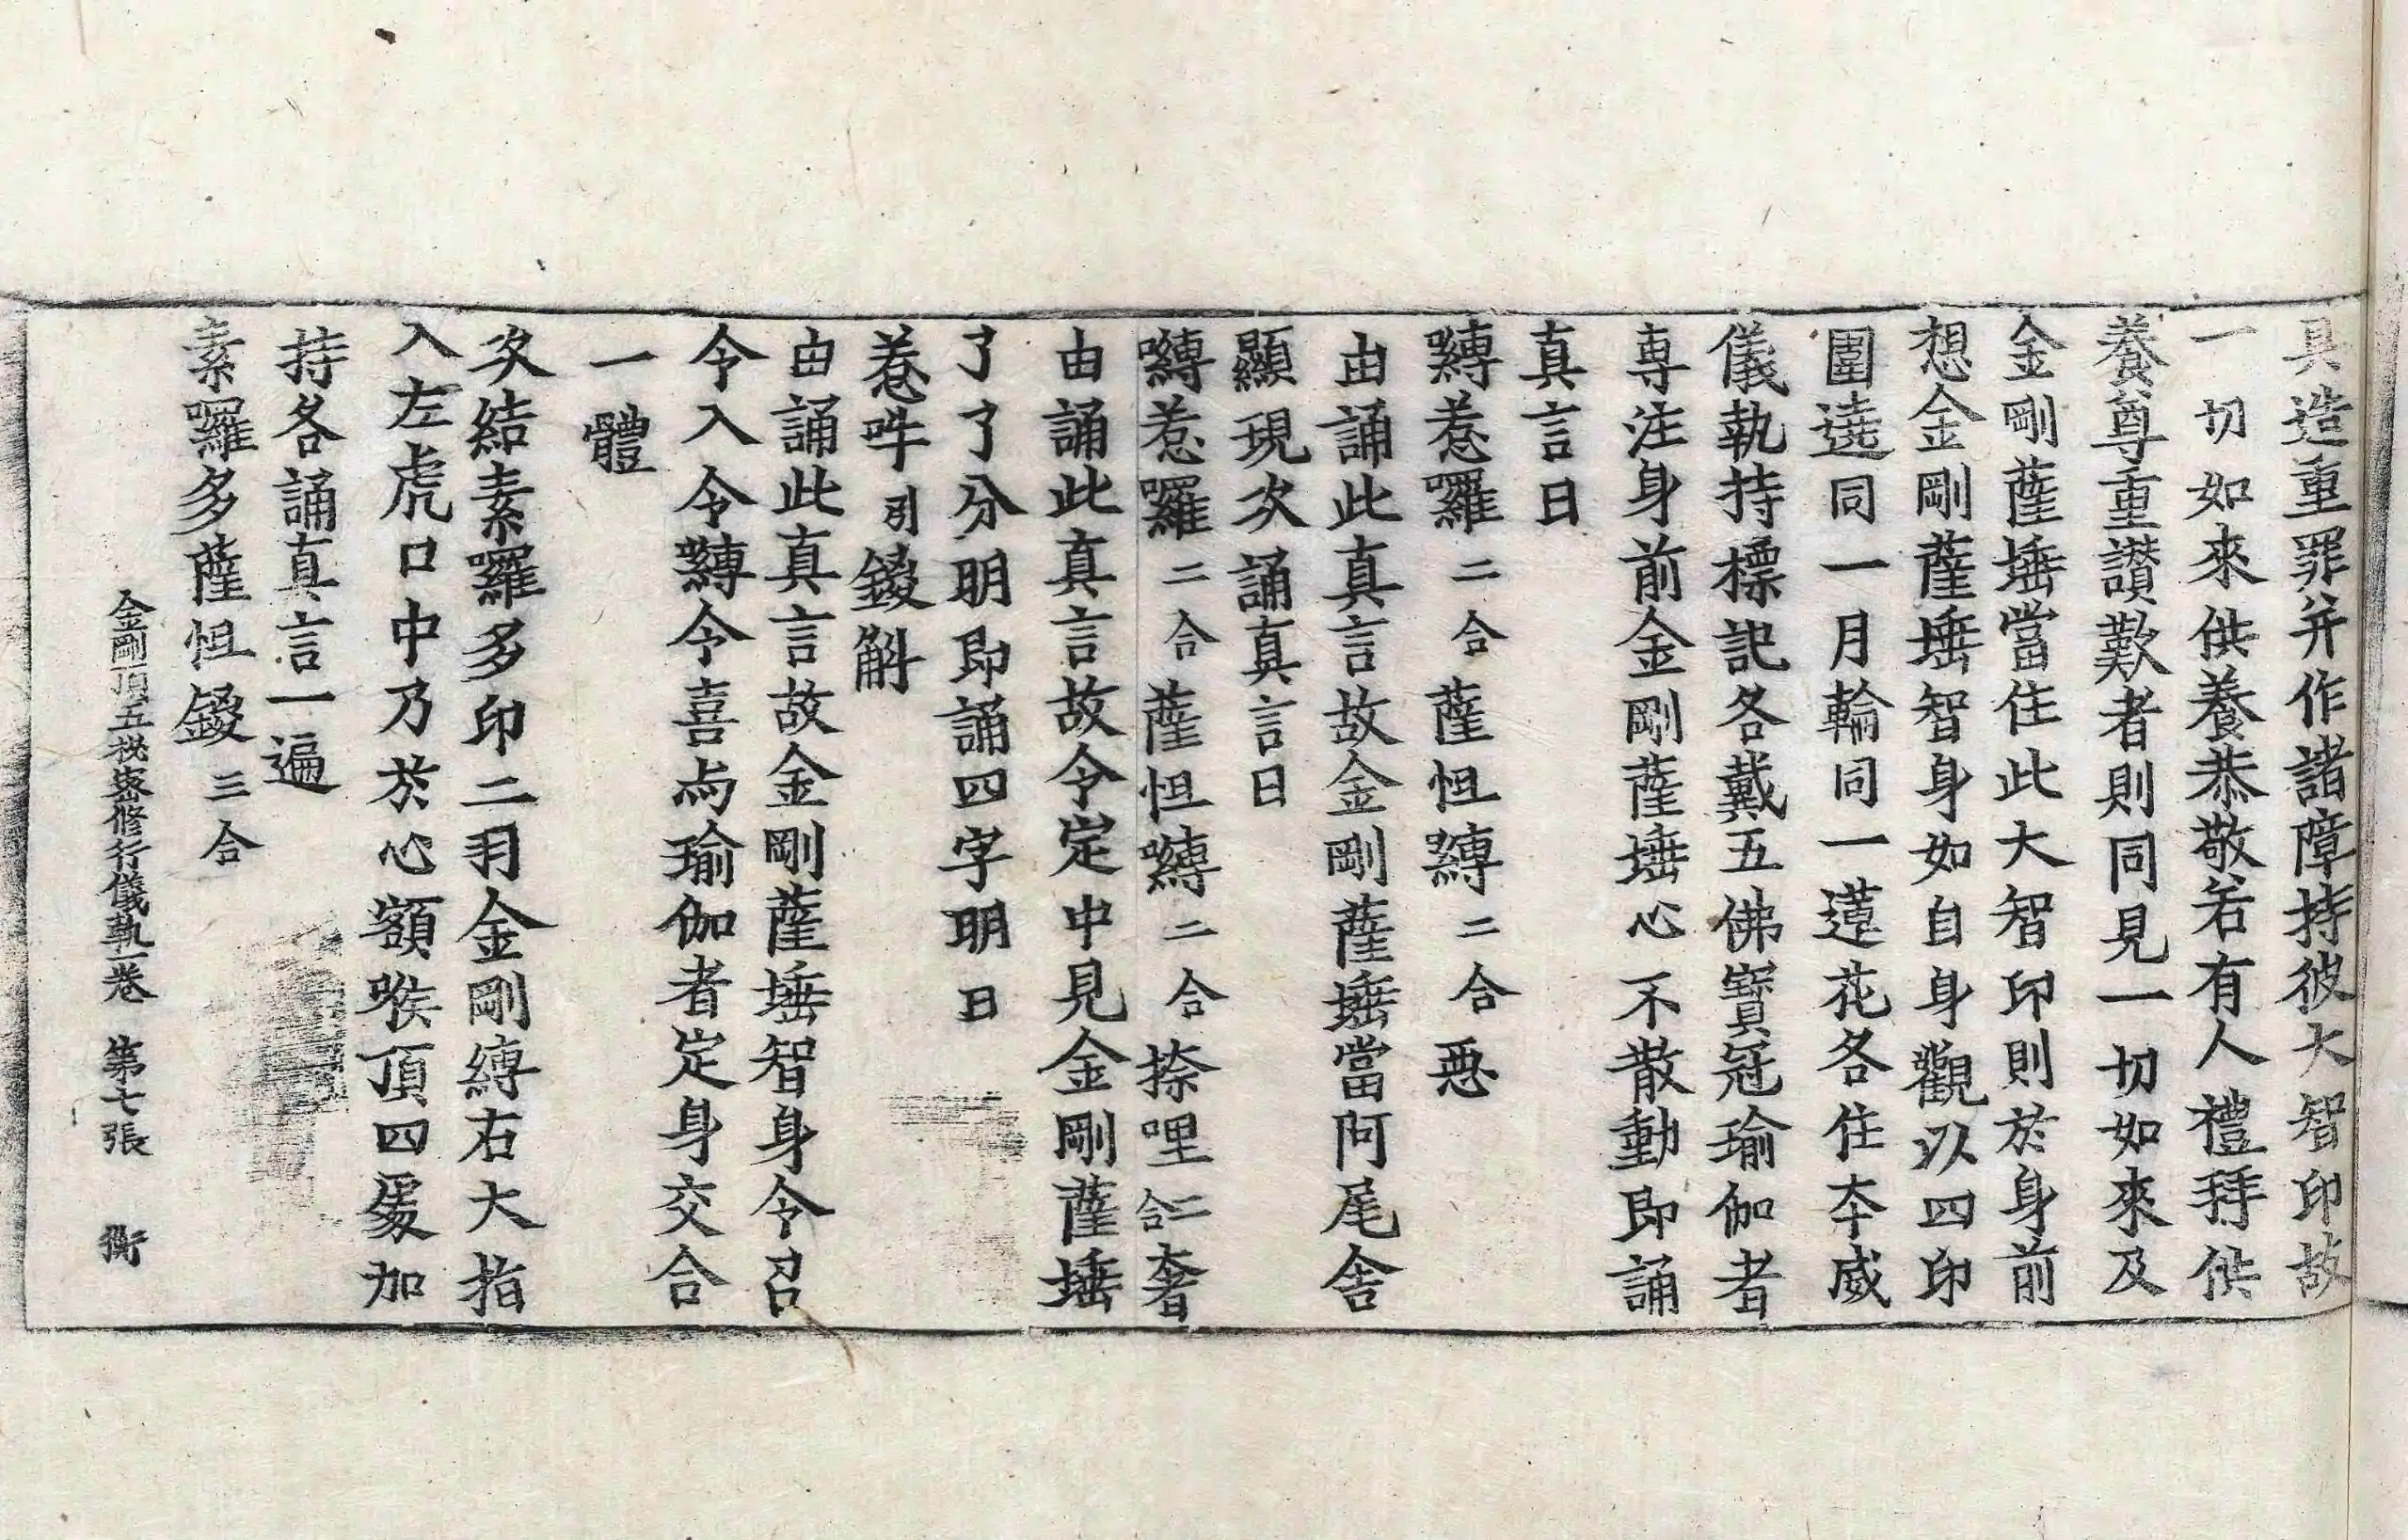 具造重罪并作諸障持彼大智印故
一切如來供養恭敬若有人禮拜供
養尊重讃歎者則同見一切如來及
金剛薩埵當住此大智印則於身前
想金剛薩埵智身如自身觀以四印
圍遶同一月輪同一蓮花各住本威
儀執持標記各戴五佛寶冠瑜伽者
專注身前金剛薩埵心不散動即誦
真言曰
嚩惹囉二合薩怛嚩二合惡
由誦此真言故金剛薩埵當阿尾舍
顯現次誦真言曰
嚩惹囉二合薩怛嚩二合捺哩二合奢
由誦此真言故令定中見金剛薩埵
了了分明即誦四字明曰
惹吽引鑁斛
由誦此真言故金剛薩埵智身令召
令入令縛令喜與瑜伽者定身交合
一體
次結素囉多印二羽金剛縛右大指
入左虎口中乃於心額喉頂四處加
持各誦真言一遍
素囉多薩怛鑁三合
金剛頂五秘密修行儀軌一卷 第七張 衡